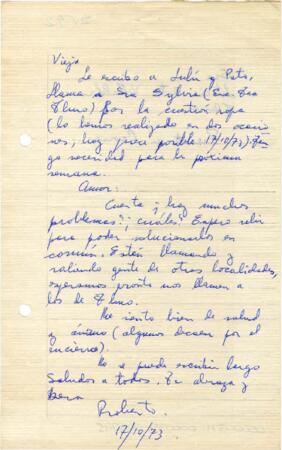 Viejo
Le escribo a Lulú y Pato,
llama a Sra Sylvia (Sra
) por la cuestión ropa
(lo hemos realizado en dos ocasio
nes, hoy parece posible 17/10/73). Ten
go necesidad para la próxima
semana.
Amor:
Cuenta ¿hay muchos
problemas?; ¿cuáles? Espero salir
para poder solucionarlos en
común. Están llamando y
saliendo gente de otras localidades,
esperamos pronto nos llamen a
los de
Me siento bien de salud
y ánimo (algunos decaen por el
encierro).
No se puede escribir largo
Saludos a todos. Te abraza y
besa
Roberto.
17/10/73